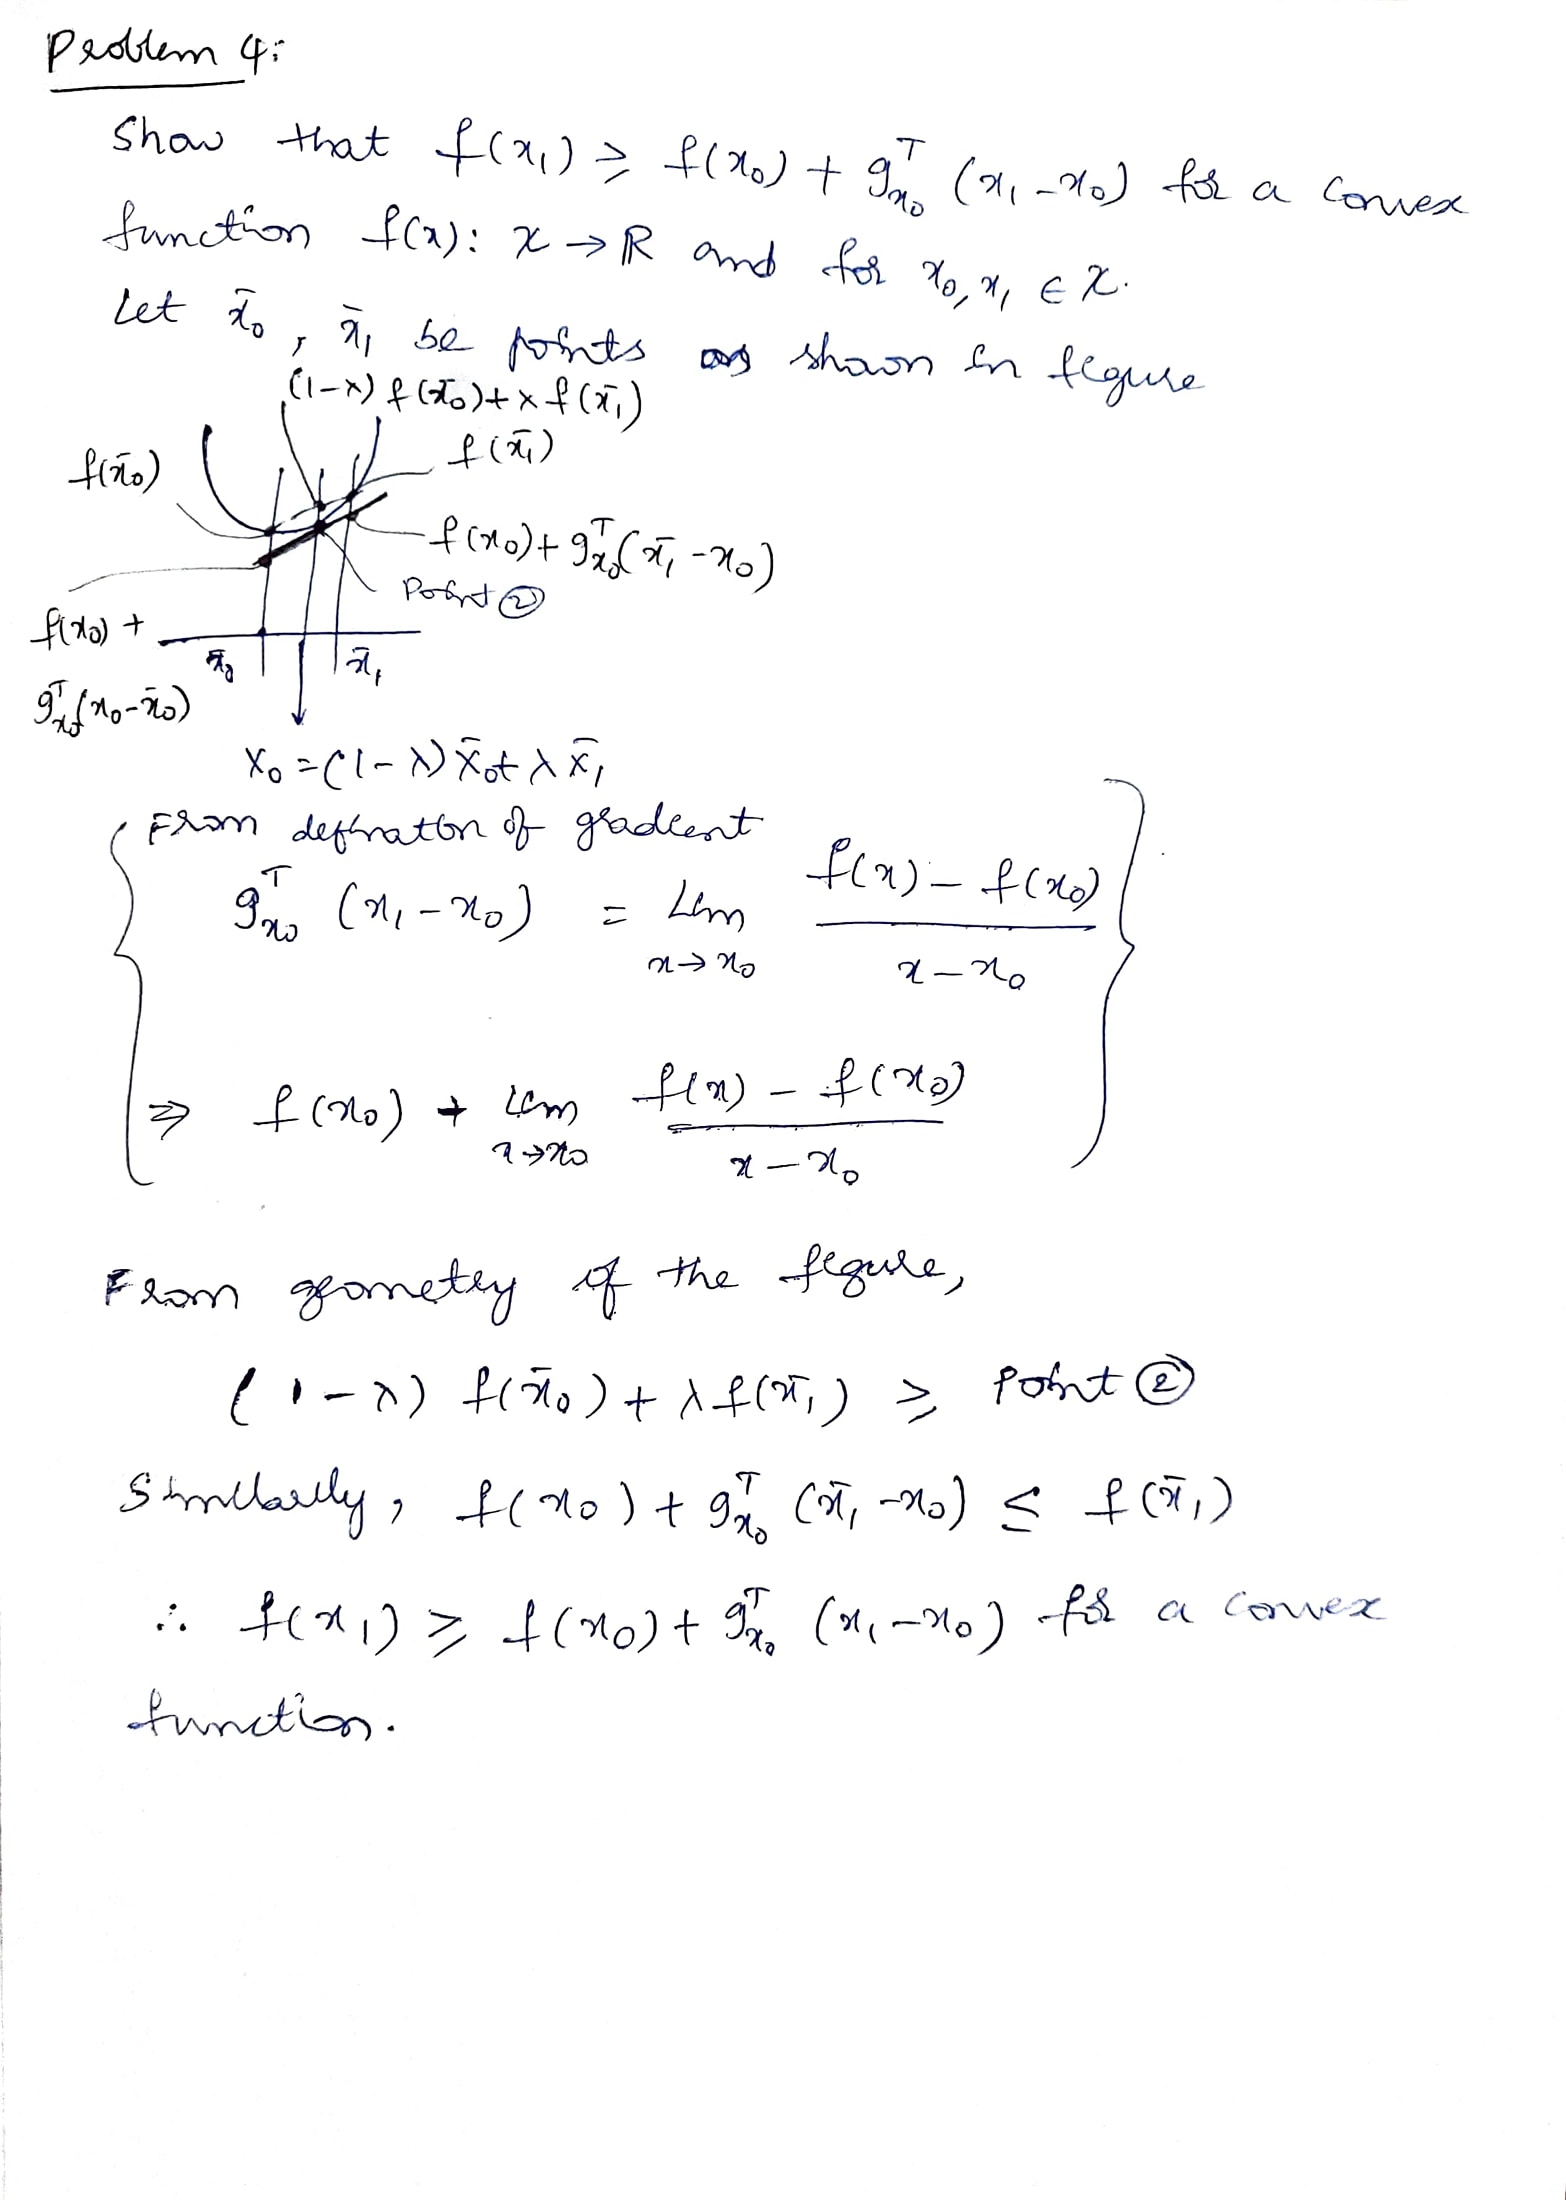 Problem 4:
Show that f(x₁) ≥ f(x₀) + gᵀₓ₀ (x₁ - x₀) for a Convex
function f(x): X → ℝ and for x₀, x₁ ∈ X.
Let x̄₀, x̄₁ be points as shown in figure
(1-λ) f(x̄₀) + λ f(x̄₁)
f(x̄₁)
f(x̄₀)
f(x₀) + gᵀₓ₀(x̄₁ - x₀)
Point ②
f(x₀) +
gᵀₓ₀(x₀ - x̄₀)
x̄₀
x̄₁
X₀ = (1-λ) x̄₀ + λ x̄₁
From defination of gradient
gᵀₓ₀ (x₁ - x₀) = Lim x→x₀ (f(x) - f(x₀)) / (x - x₀)
⇒ f(x₀) + Lim x→x₀ (f(x) - f(x₀)) / (x - x₀)
From geometry of the figure,
(1-λ) f(x̄₀) + λ f(x̄₁) ≥ Point ②
Similarly, f(x₀) + gᵀₓ₀ (x̄₁ - x₀) ≤ f(x̄₁)
∴ f(x₁) ≥ f(x₀) + gᵀₓ₀ (x₁ - x₀) for a convex
function.